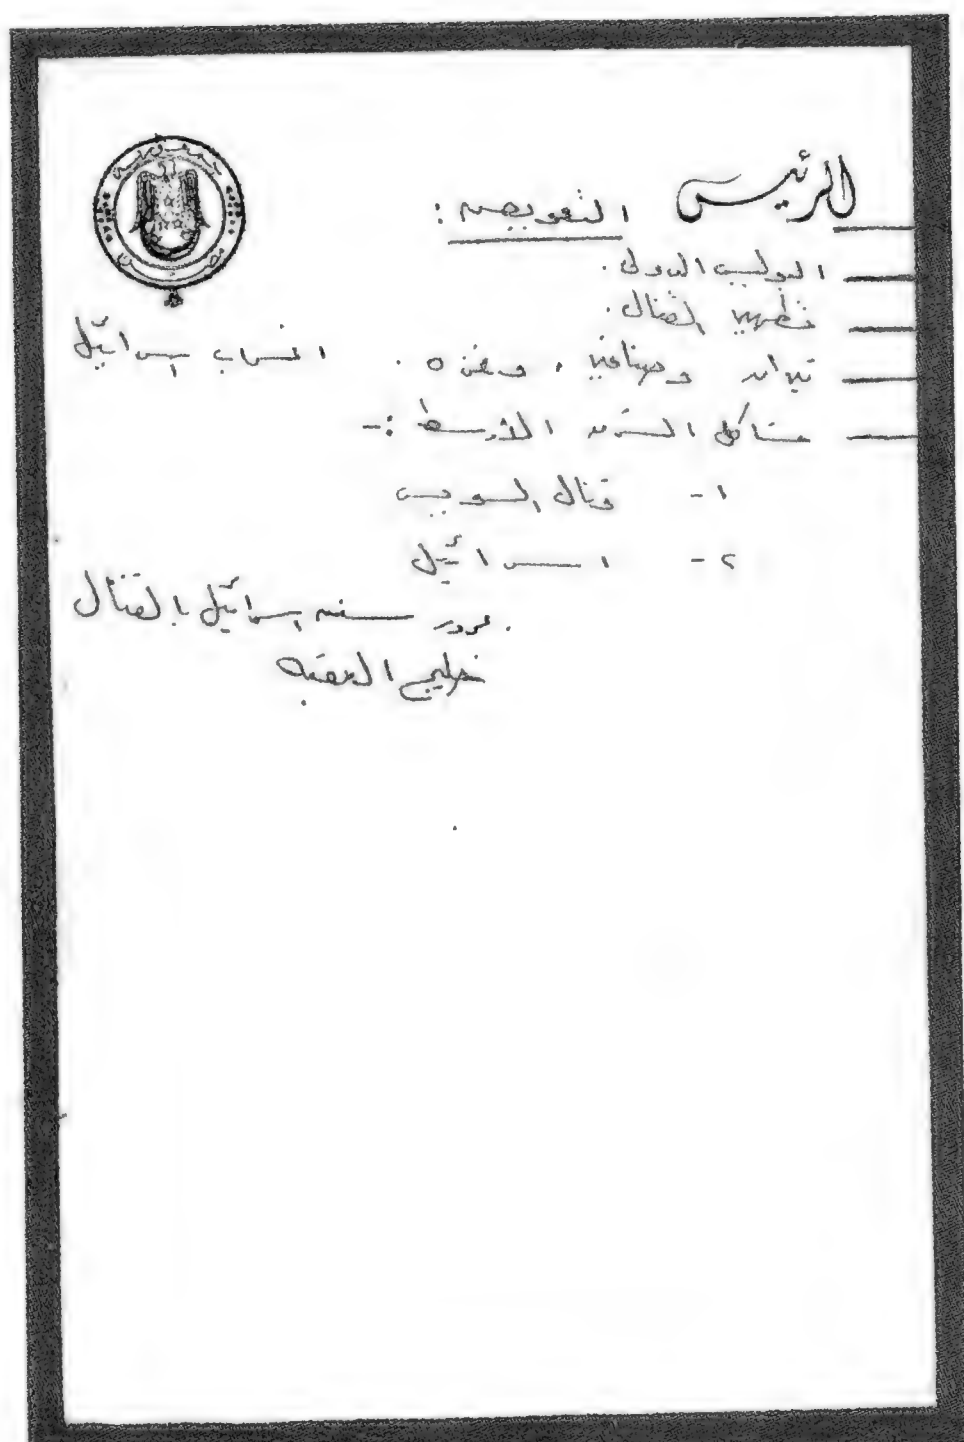 جمهورية مصر
الرئيس
التعويضات :
البوليس الدولى .
تطهير القنال .
تيران وصنافير ، وغزه . انسحاب اسرائيل
مشاكل الشرق الأوسط :-
١- قنال السويس
٢- اسرائيل
. مرور سفن اسرائيل بالقنال
خليج العقبه